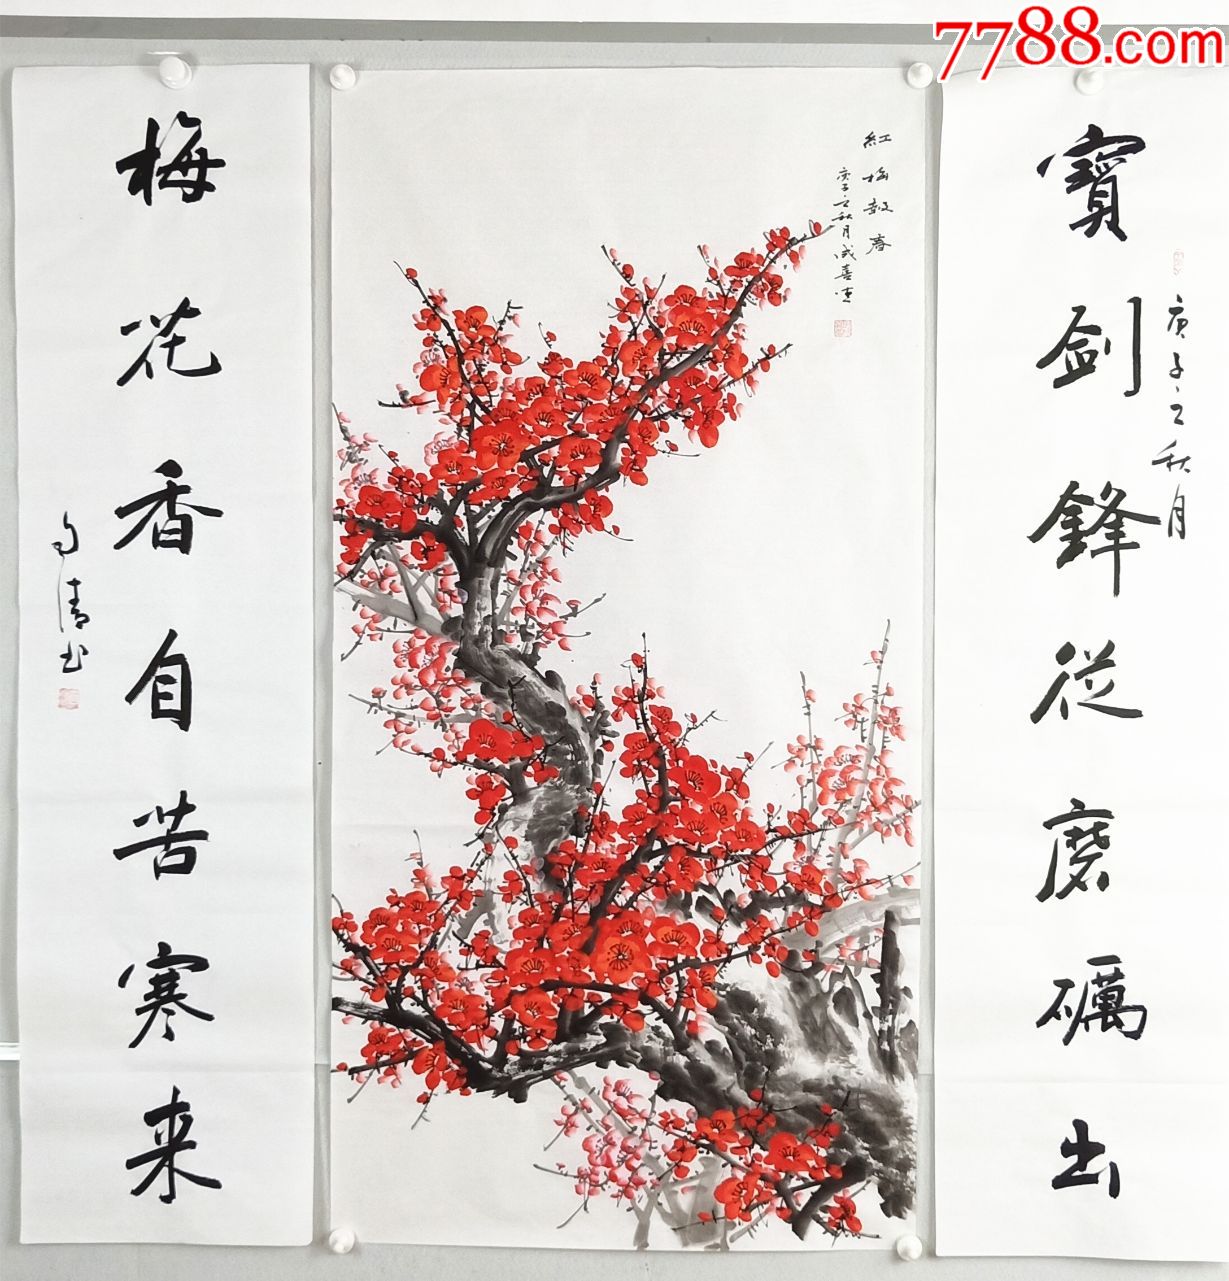 7788.com
寶剑鋒從磨礪出
庚子之秋月
紅梅報春
庚子之秋月成喜画
梅花香自苦寒来
清书